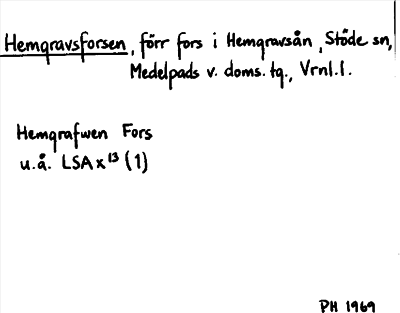 Hemgravsforsen, förr fors i Hemgravsån, Stöde sn,
Medelpads v. doms. tg., Vrnl. l.
Hemgrafwen Fors
u.å. LSA x¹³ (1)
PH 1969